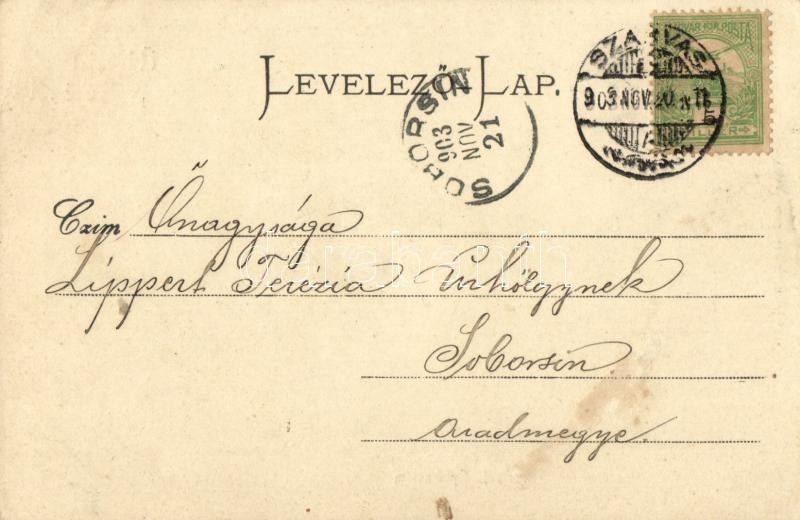 MAGYAR KIR. POSTA
SZARVAS
903 NOV. 20.
LEVELEZŐ-LAP.
SOBORSIN
903
NOV
21
Czim Őnagysága
Lippert Terézia Úrhölgynek
Soborsin
Aradmegye.
darabanth